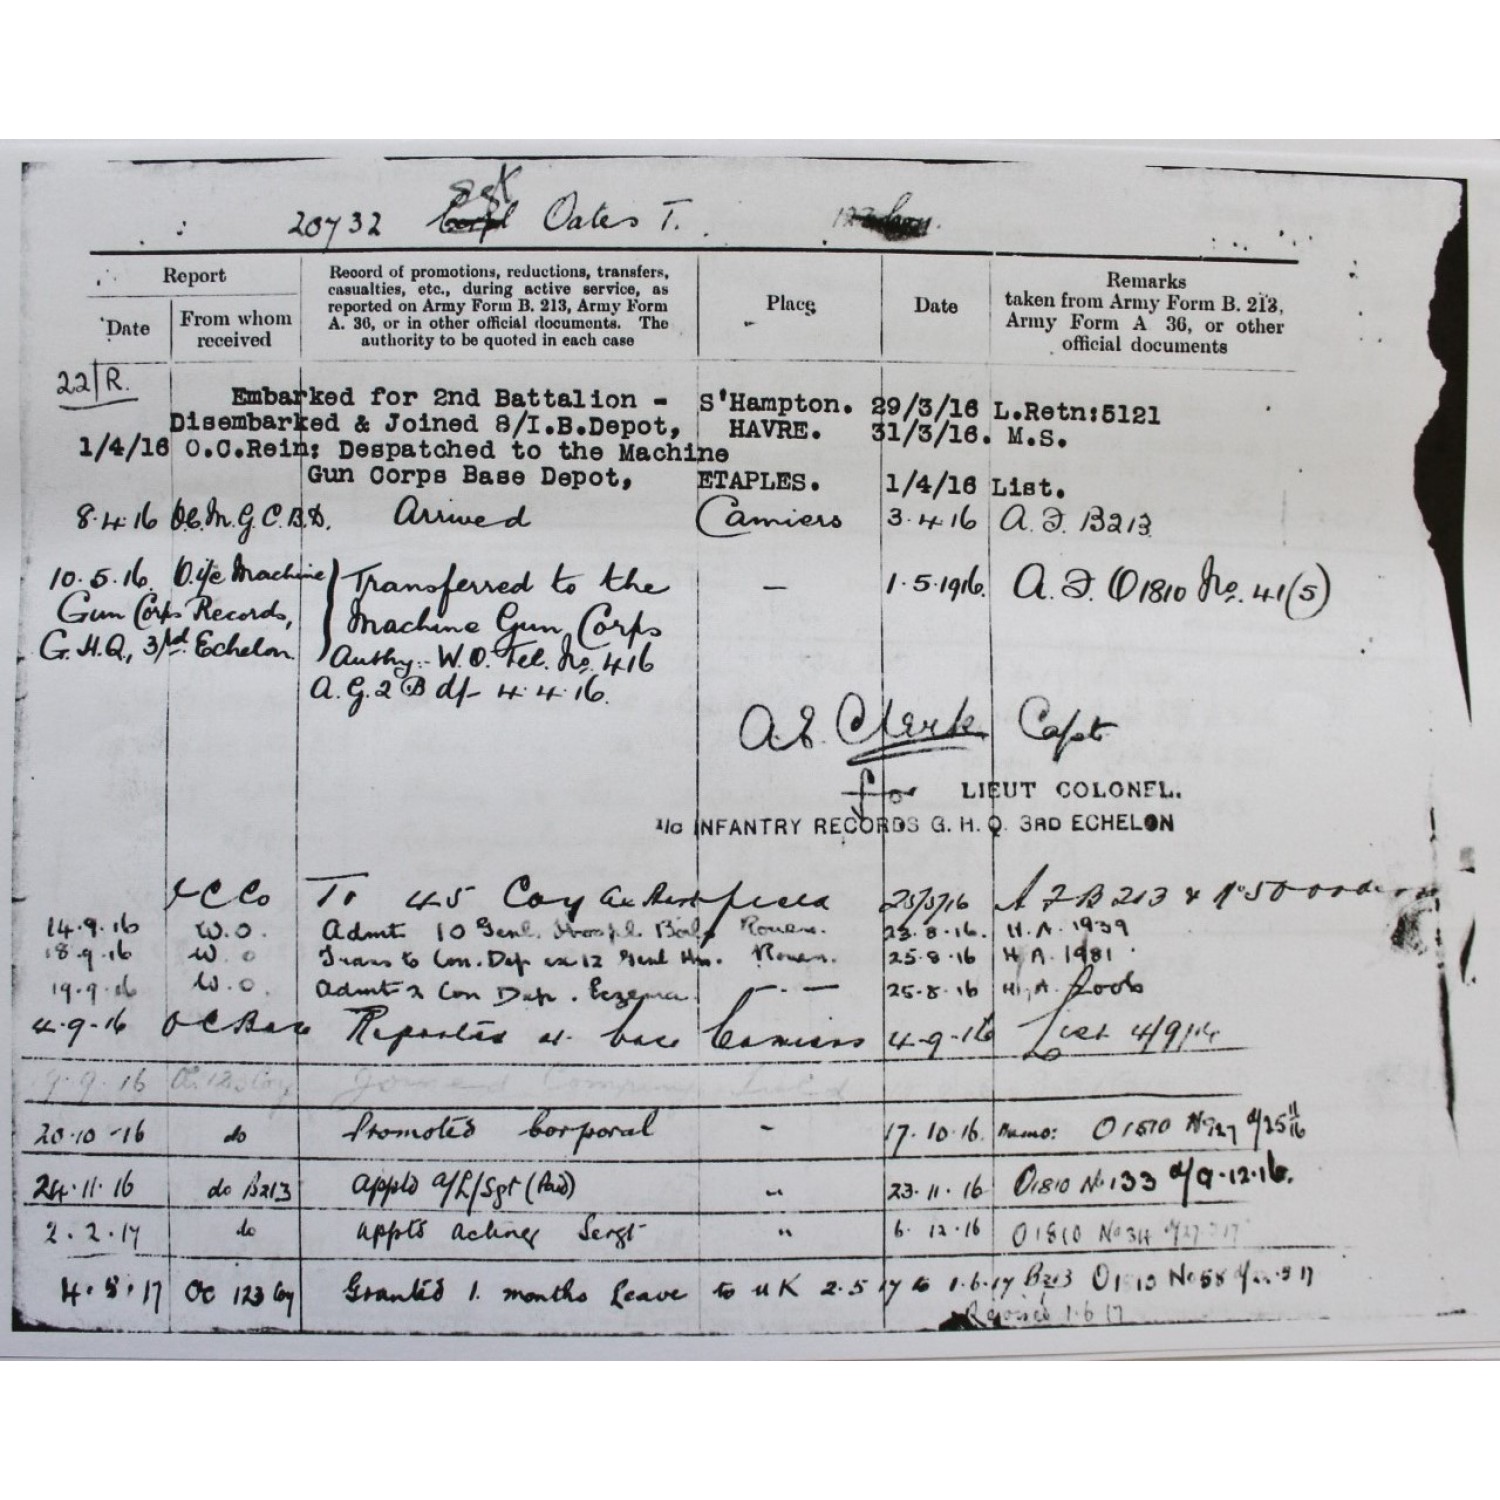 Sgt
20732 Corpl Oates T.
Report
Date
From whom received
Record of promotions, reductions, transfers,
casualties, etc., during active service, as
reported on Army Form B. 213, Army Form
A. 36, or in other official documents. The
authority to be quoted in each case
Place
Date
Remarks
taken from Army Form B. 213,
Army Form A 36, or other
official documents
22/R.
Embarked for 2nd Battalion - S'Hampton. 29/3/16 L.Retn:5121
Disembarked & Joined 8/I.B.Depot, HAVRE. 31/3/16. M.S.
1/4/16 O.C.Rein: Despatched to the Machine
Gun Corps Base Depot, ETAPLES. 1/4/16 List.
8.4.16 O.C. M.G.C.B.D. Arrived Camiers 3.4.16 A.F. B213
10.5.16. O. i/c Machine Transferred to the — 1.5.1916. A.F. O1810 No. 41(5)
Gun Corps Records, Machine Gun Corps
G.H.Q., 3rd Echelon. Authy:- W.O. Tel. No. 416
A.G.2 B d/- 4.4.16.
A.E. Clerk Capt
for LIEUT COLONEL.
I/C INFANTRY RECORDS G. H. Q. 3RD ECHELON
OC Co To 45 Coy field A F B 213
14.9.16 W.O. Admt 10 Genl. Hospl. Boils Rouen. 23.8.16. H.A. 1939
18.9.16 W.O Trans to Con. Dep ex 12 Genl Rouen. 25.8.16 H.A. 1981
19.9.16 W.O. Admt 2 Con Dep. Eczema. — 25.8.16 H.A.
4-9-16 OC Base Reported at base Camiers 4-9-16 List 4/9/16
9.9.16 Joined Company Field
20.10-16 do Promoted Corporal - 17.10.16. Memo: O1810
24.11.16 do B213 appts a/L/Sgt (Paid) " 23.11.16 O1810 No 133 d/9.12.16.
2.2.17 do appts acting Sergt " 6.12.16 O1810 No 34
4.5.17 OC 123 Coy Granted 1 months Leave to UK 2.5.17 to 1.6.17 B213 No 58
Rejoined 1.6.17